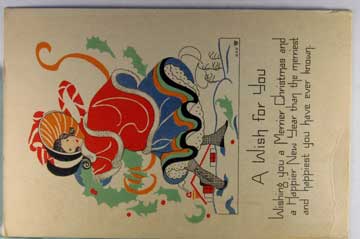 A Wish for You
Wishing you a Merrier Christmas and
a Happier New Year than the merriest
and happiest you have ever known.